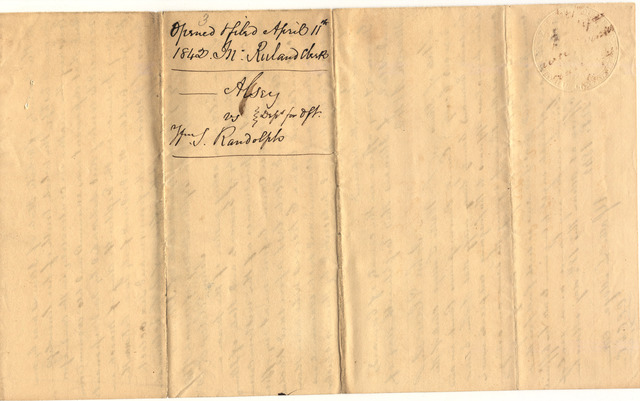 3
Opened & filed April 11th
1842. Jn: Ruland Clerk
— Alsey
vs } Deps for Dft.
Wm S. Randolph